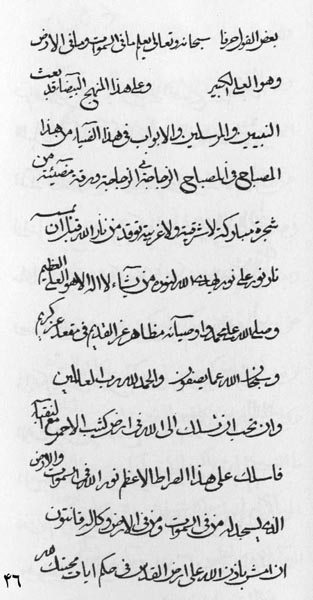 بعض القول حرفا سبحانه وتعالى يعلم ما فى السموات وما فى الارض
وهو العلى الكبير وعلى هذا المنهج البيضآء قد بعث
النبيين والمرسلين والابواب فى هذا القيام من هذا
المصباح فى المصباح الزجاجة فى الزجاجة ورقة مضيئة من
شجرة مباركة لا شرقية ولا غربية توقد من نار الله قبل ان تمسسه
نار نور على نور يهدى الله لنوره من يشآء لا اله الا هو العلى العظيم
وصلى الله على محمد واوصيآئه مظاهر عز القديم فى مقعد عز كريم
وسبحان الله عما يصفون والحمد لله رب العالمين
وان تحب ان تسلك الى الله فى ارض كثيب الاحمر مع النقبآء
فاسلك على هذا الصراط الاعظم نور الله فى السموات والارض
الذى يسجد له من فى السموات ومن فى الارض وكل له قانتون
ان امش باذن الله على ارض الفؤاد فى حكم ايات محبتك لله
٤٦